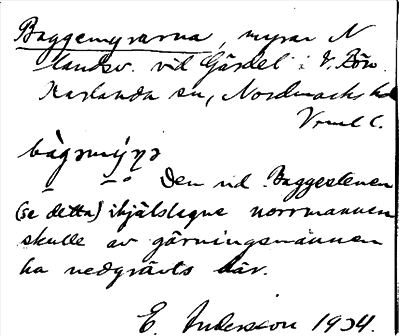 Baggemyrarna, myrar N
landsv. vid Gärdet i V. Bön
Karlanda sn, Nordmarks hd
Vrml.
bàgamýṛa
Den vid Baggestenen
(se detta) ihjälslagne norrmannen
skulle av gärningsmännen
ha nedgrävts där.
E. Andersson 1934.